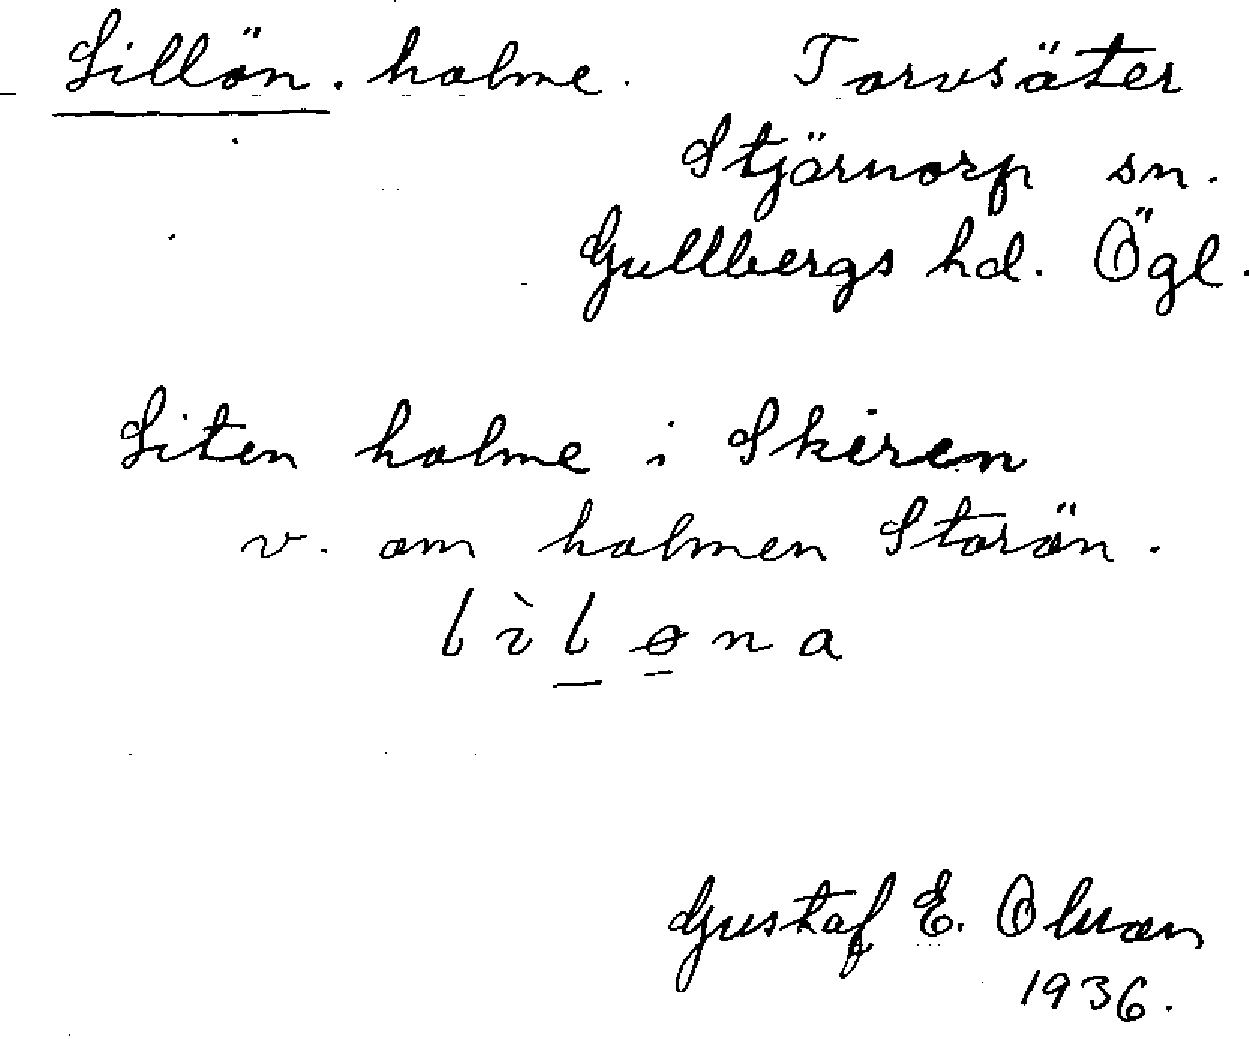 Lillön. holme. Torvsäter
Stjärnorp sn.
Gullbergs hd. Ögl.
Liten holme i Skiren
v. om holmen Storön.
lìløna
Gustaf E. Olsson
1936.